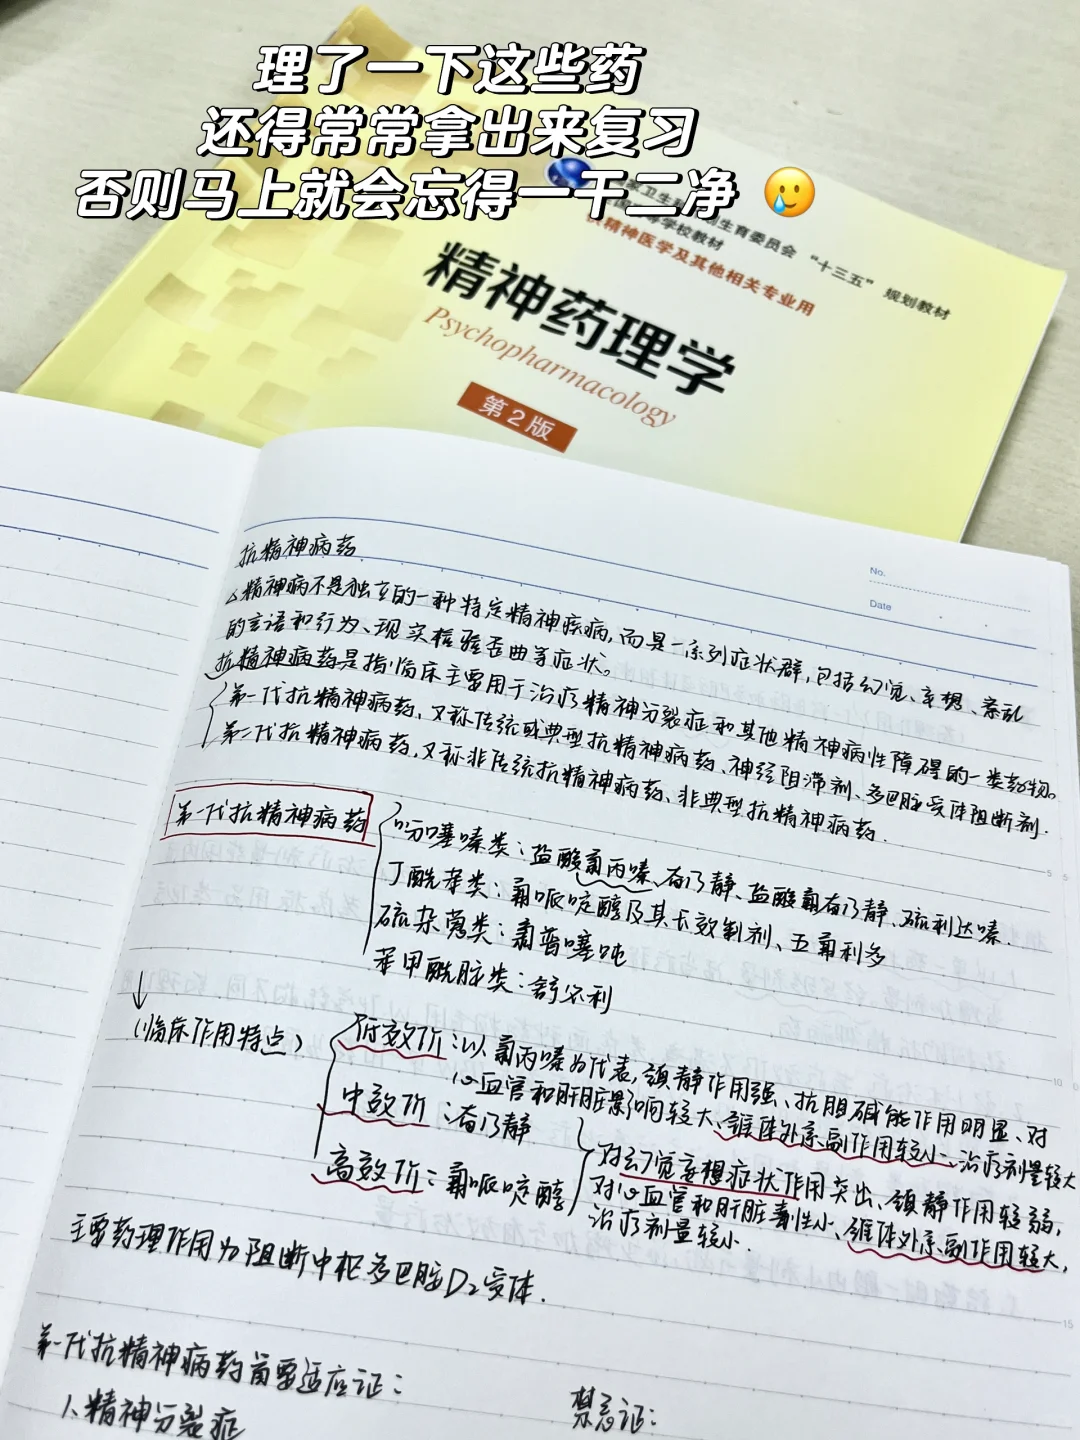 理了一下这些药
还得常常拿出来复习
否则马上就会忘得一干二净 🥲
生育委员会 “十三五” 规划教材
学校教材
供精神医学及其他相关专业用
精神药理学
Psychopharmacology
第2版
No.
Date
抗精神病药
△精神病不是独立的一种特定精神疾病,而是一系列症状群,包括幻觉、妄想、紊乱
的言语和行为、现实检验歪曲等症状。
抗精神病药是指临床主要用于治疗精神分裂症和其他精神病性障碍的一类药物。
第一代抗精神病药,又称传统或典型抗精神病药、神经阻滞剂、多巴胺受体阻断剂.
第二代抗精神病药,又称非传统抗精神病药、非典型抗精神病药.
第一代抗精神病药
吩噻嗪类:盐酸氯丙嗪、奋乃静、盐酸氟奋乃静、硫利达嗪.
丁酰苯类:氟哌啶醇及其长效制剂、五氟利多
硫杂蒽类:氯普噻吨
苯甲酰胺类:舒必利
↓
(临床作用特点)
低效价:以氯丙嗪为代表,镇静作用强、抗胆碱能作用明显、对
心血管和肝脏影响较大、锥体外系副作用较小、治疗剂量较大
中效价:奋乃静
高效价:氟哌啶醇
对幻觉妄想症状作用突出、镇静作用较弱,
对心血管和肝脏毒性小、锥体外系副作用较大,
治疗剂量较小.
主要药理作用为阻断中枢多巴胺D₂受体.
第一代抗精神病药首要适应证:
1.精神分裂症
禁忌证:
5
10
15